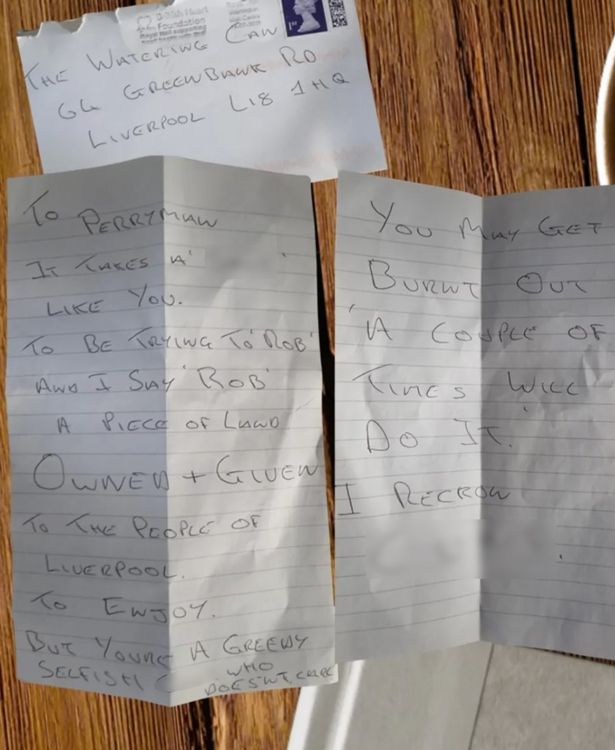 British Heart
Foundation
Royal Mail supporting
1st
THE WATERING CAN
GREENBANK RD
LIVERPOOL L18 1HQ
TO PERRYMAN
IT TAKES A'
LIKE YOU.
TO BE TRYING TO 'ROB'
AND I SAY 'ROB'
A PIECE OF LAND
OWNED + GIVEN
TO THE PEOPLE OF
LIVERPOOL.
TO ENJOY.
BUT YOUR A GREEDY
SELFISH WHO
DOESN'T CARE
YOU MAY GET
BURNT OUT
'A COUPLE OF
TIMES WILL
DO IT.'
I RECKON